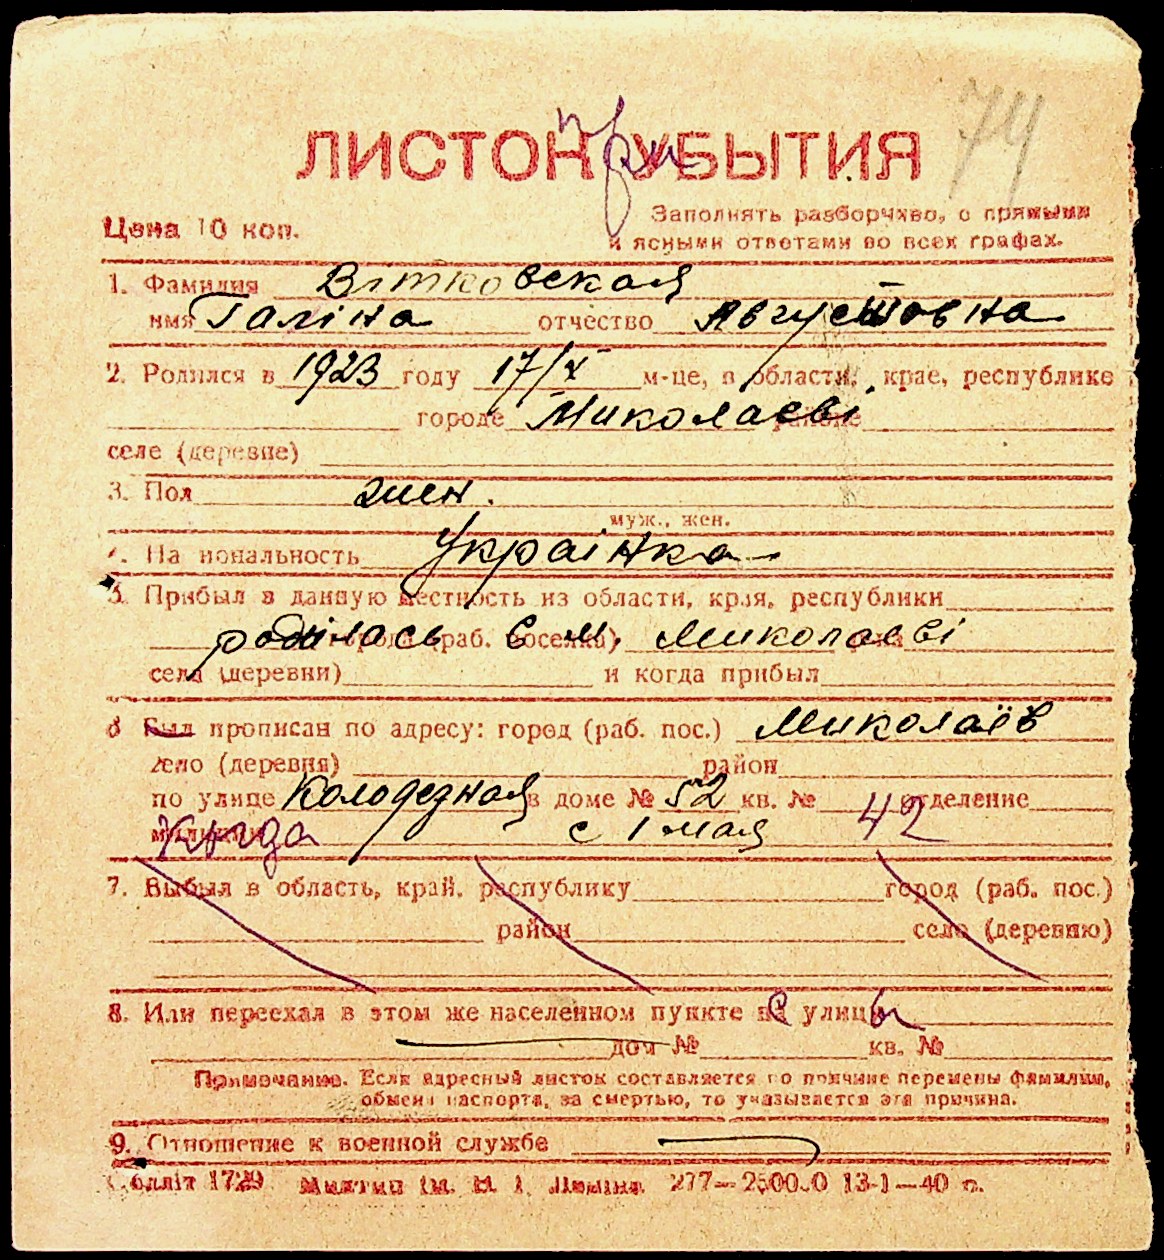 74
ЛИСТОК при УБЫТИЯ
Цена 10 коп.
Заполнять разборчиво, с прямыми
и ясными ответами во всех графах.
1. Фамилия Вітковская
имя Галіна отчество Августовна
2. Родился в 1923 году 17/X м-це, в области, крае, республике
городе Миколаєві районе
селе (деревне)
3. Пол жен.
муж., жен.
4. Национальность Українка
5. Прибыл в данную местность из области, края, республики
роділась города (раб. поселка) в м. Миколаєві
села (деревни) и когда прибыл
6 Был прописан по адресу: город (раб. пос.) Миколаїв
село (деревня) район
по улице Колодезная в доме № 52 кв. № отделение
милиции когда с 1 мая 42
7. Выбыл в область, край, республику город (раб. пос.)
район село (деревню)
8. Или переехал в этом же населенном пункте с улицы
дом № кв. №
Примечание. Если адресный листок составляется по причине перемены фамилии,
обмена паспорта, за смертью, то указывается эта причина.
9. Отношение к военной службе
Облліт 1729 им. В. І. Леніна. 277— 13-1—40 р.